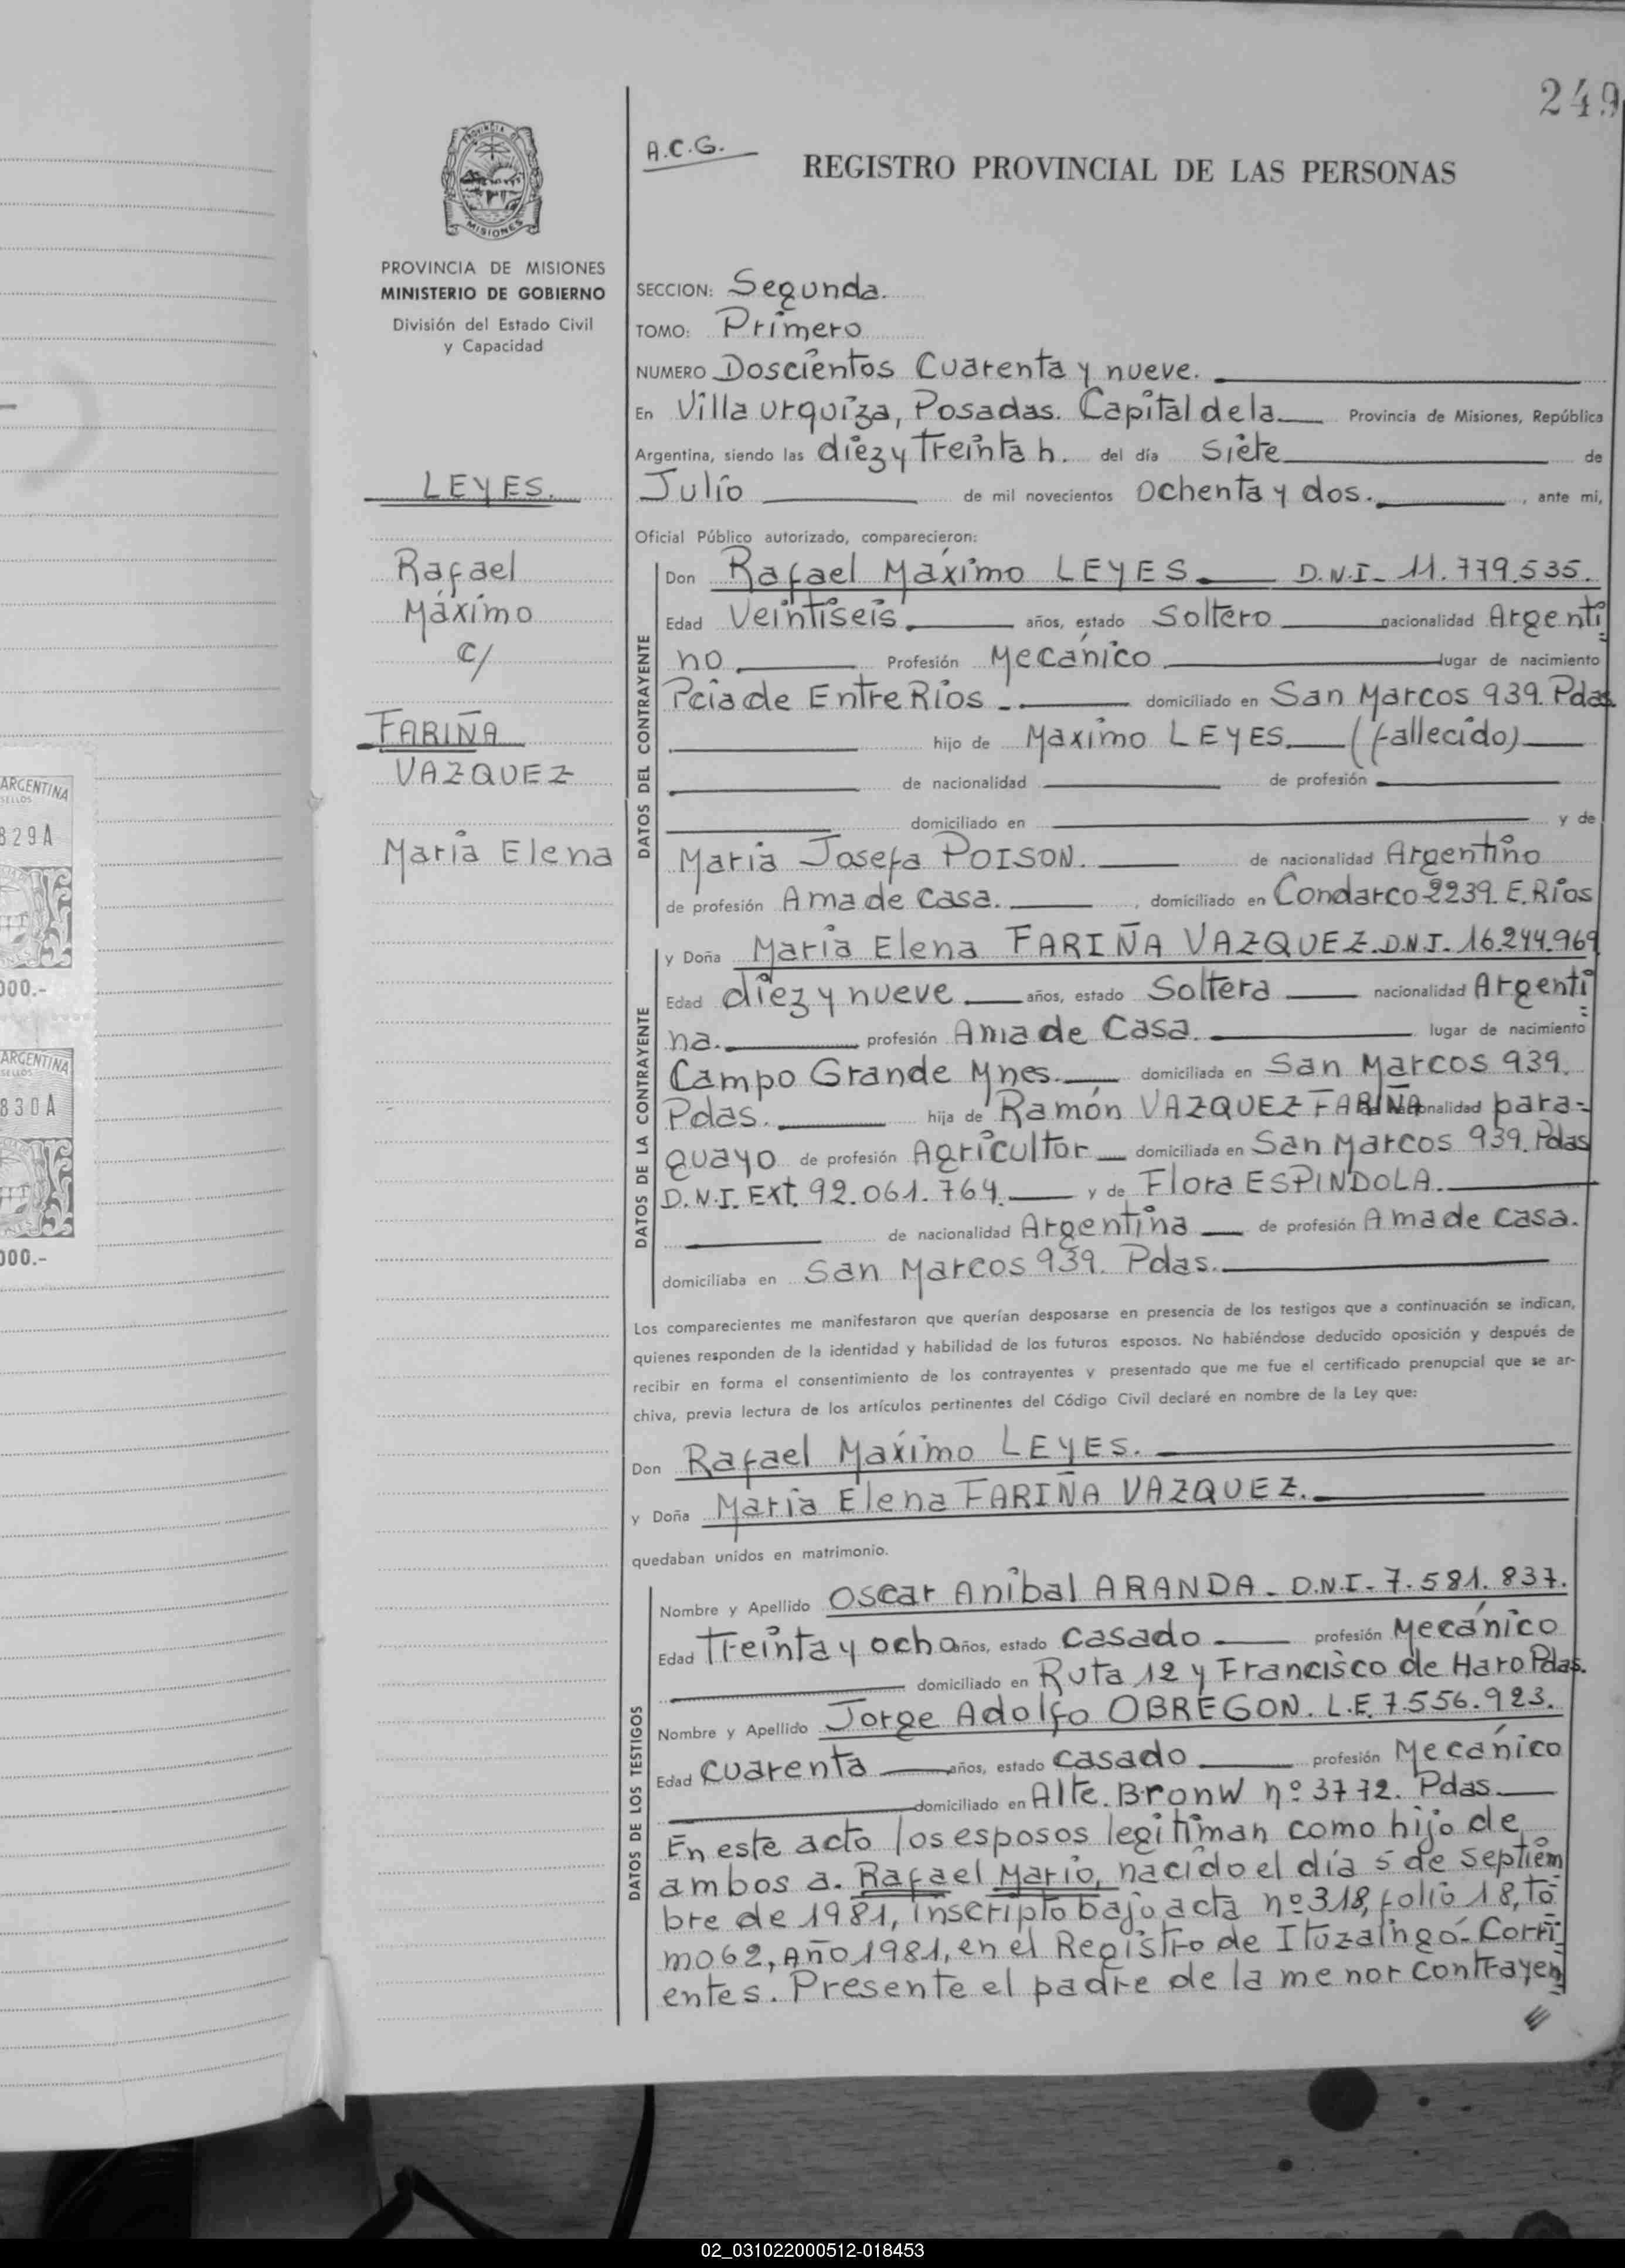 249
A.C.G.
REGISTRO PROVINCIAL DE LAS PERSONAS
PROVINCIA DE
MISIONES
PROVINCIA DE MISIONES
MINISTERIO DE GOBIERNO
División del Estado Civil
y Capacidad
LEYES.
Rafael
Máximo
c/
FARIÑA
VAZQUEZ
Maria Elena
ARGENTINA
SELLOS
829A
000.-
ARGENTINA
SELLOS
830A
000.-
SECCION: Segunda.
TOMO: Primero
NUMERO Doscientos Cuarenta y nueve.
En Villa urquiza, Posadas. Capital de la Provincia de Misiones, República
Argentina, siendo las diez y treinta h. del día Siete de
Julio de mil novecientos Ochenta y dos. , ante mi,
Oficial Público autorizado, comparecieron:
DATOS DEL CONTRAYENTE
Don Rafael Máximo LEYES. D.N.I- 11.779.535.
Edad Veintiseis. años, estado Soltero nacionalidad Argenti
no. Profesión Mecánico lugar de nacimiento
Pcia de Entre Rios - domiciliado en San Marcos 939. Pdas.
hijo de Maximo LEYES. (fallecido)
de nacionalidad de profesión
domiciliado en y de
Maria Josefa POISON. de nacionalidad Argentino
de profesión Ama de Casa. , domiciliado en Condarco 2239. E. Rios
DATOS DE LA CONTRAYENTE
y Doña Maria Elena FARIÑA VAZQUEZ. D.N.I- 16.244.969
Edad diez y nueve años, estado Soltera nacionalidad Argenti
na. profesión Ama de Casa. lugar de nacimiento
Campo Grande Mnes. domiciliada en San Marcos 939.
Pdas. hija de Ramón VAZQUEZ FARIÑA de nacionalidad para-
guayo de profesión Agricultor domiciliada en San Marcos 939. Pdas
D.N.I. Ext. 92.061.764. y de Flora ESPINDOLA.
de nacionalidad Argentina de profesión Ama de casa.
domiciliaba en San Marcos 939. Pdas.
Los comparecientes me manifestaron que querían desposarse en presencia de los testigos que a continuación se indican,
quienes responden de la identidad y habilidad de los futuros esposos. No habiéndose deducido oposición y después de
recibir en forma el consentimiento de los contrayentes y presentado que me fue el certificado prenupcial que se ar-
chiva, previa lectura de los artículos pertinentes del Código Civil declaré en nombre de la Ley que:
Don Rafael Maximo LEYES.
y Doña Maria Elena FARIÑA VAZQUEZ.
quedaban unidos en matrimonio.
DATOS DE LOS TESTIGOS
Nombre y Apellido Oscar Anibal ARANDA - D.N.I- 7.581.837.
Edad Treinta y ocho años, estado casado profesión Mecánico
domiciliado en Ruta 12 y Francisco de Haro Pdas.
Nombre y Apellido Jorge Adolfo OBREGON. L.E. 7.556.923.
Edad Cuarenta años, estado casado profesión Mecánico
domiciliado en Alte. Bronw nº 3772. Pdas.
En este acto los esposos legitiman como hijo de
ambos a. Rafael Mario, nacido el día 5 de septiem
bre de 1981, inscripto bajo acta nº 318, folio 18, to
mo 62, Año 1981, en el Registro de Ituzaingó- Corri
entes. Presente el padre de la menor contrayen
02_031022000512-018453